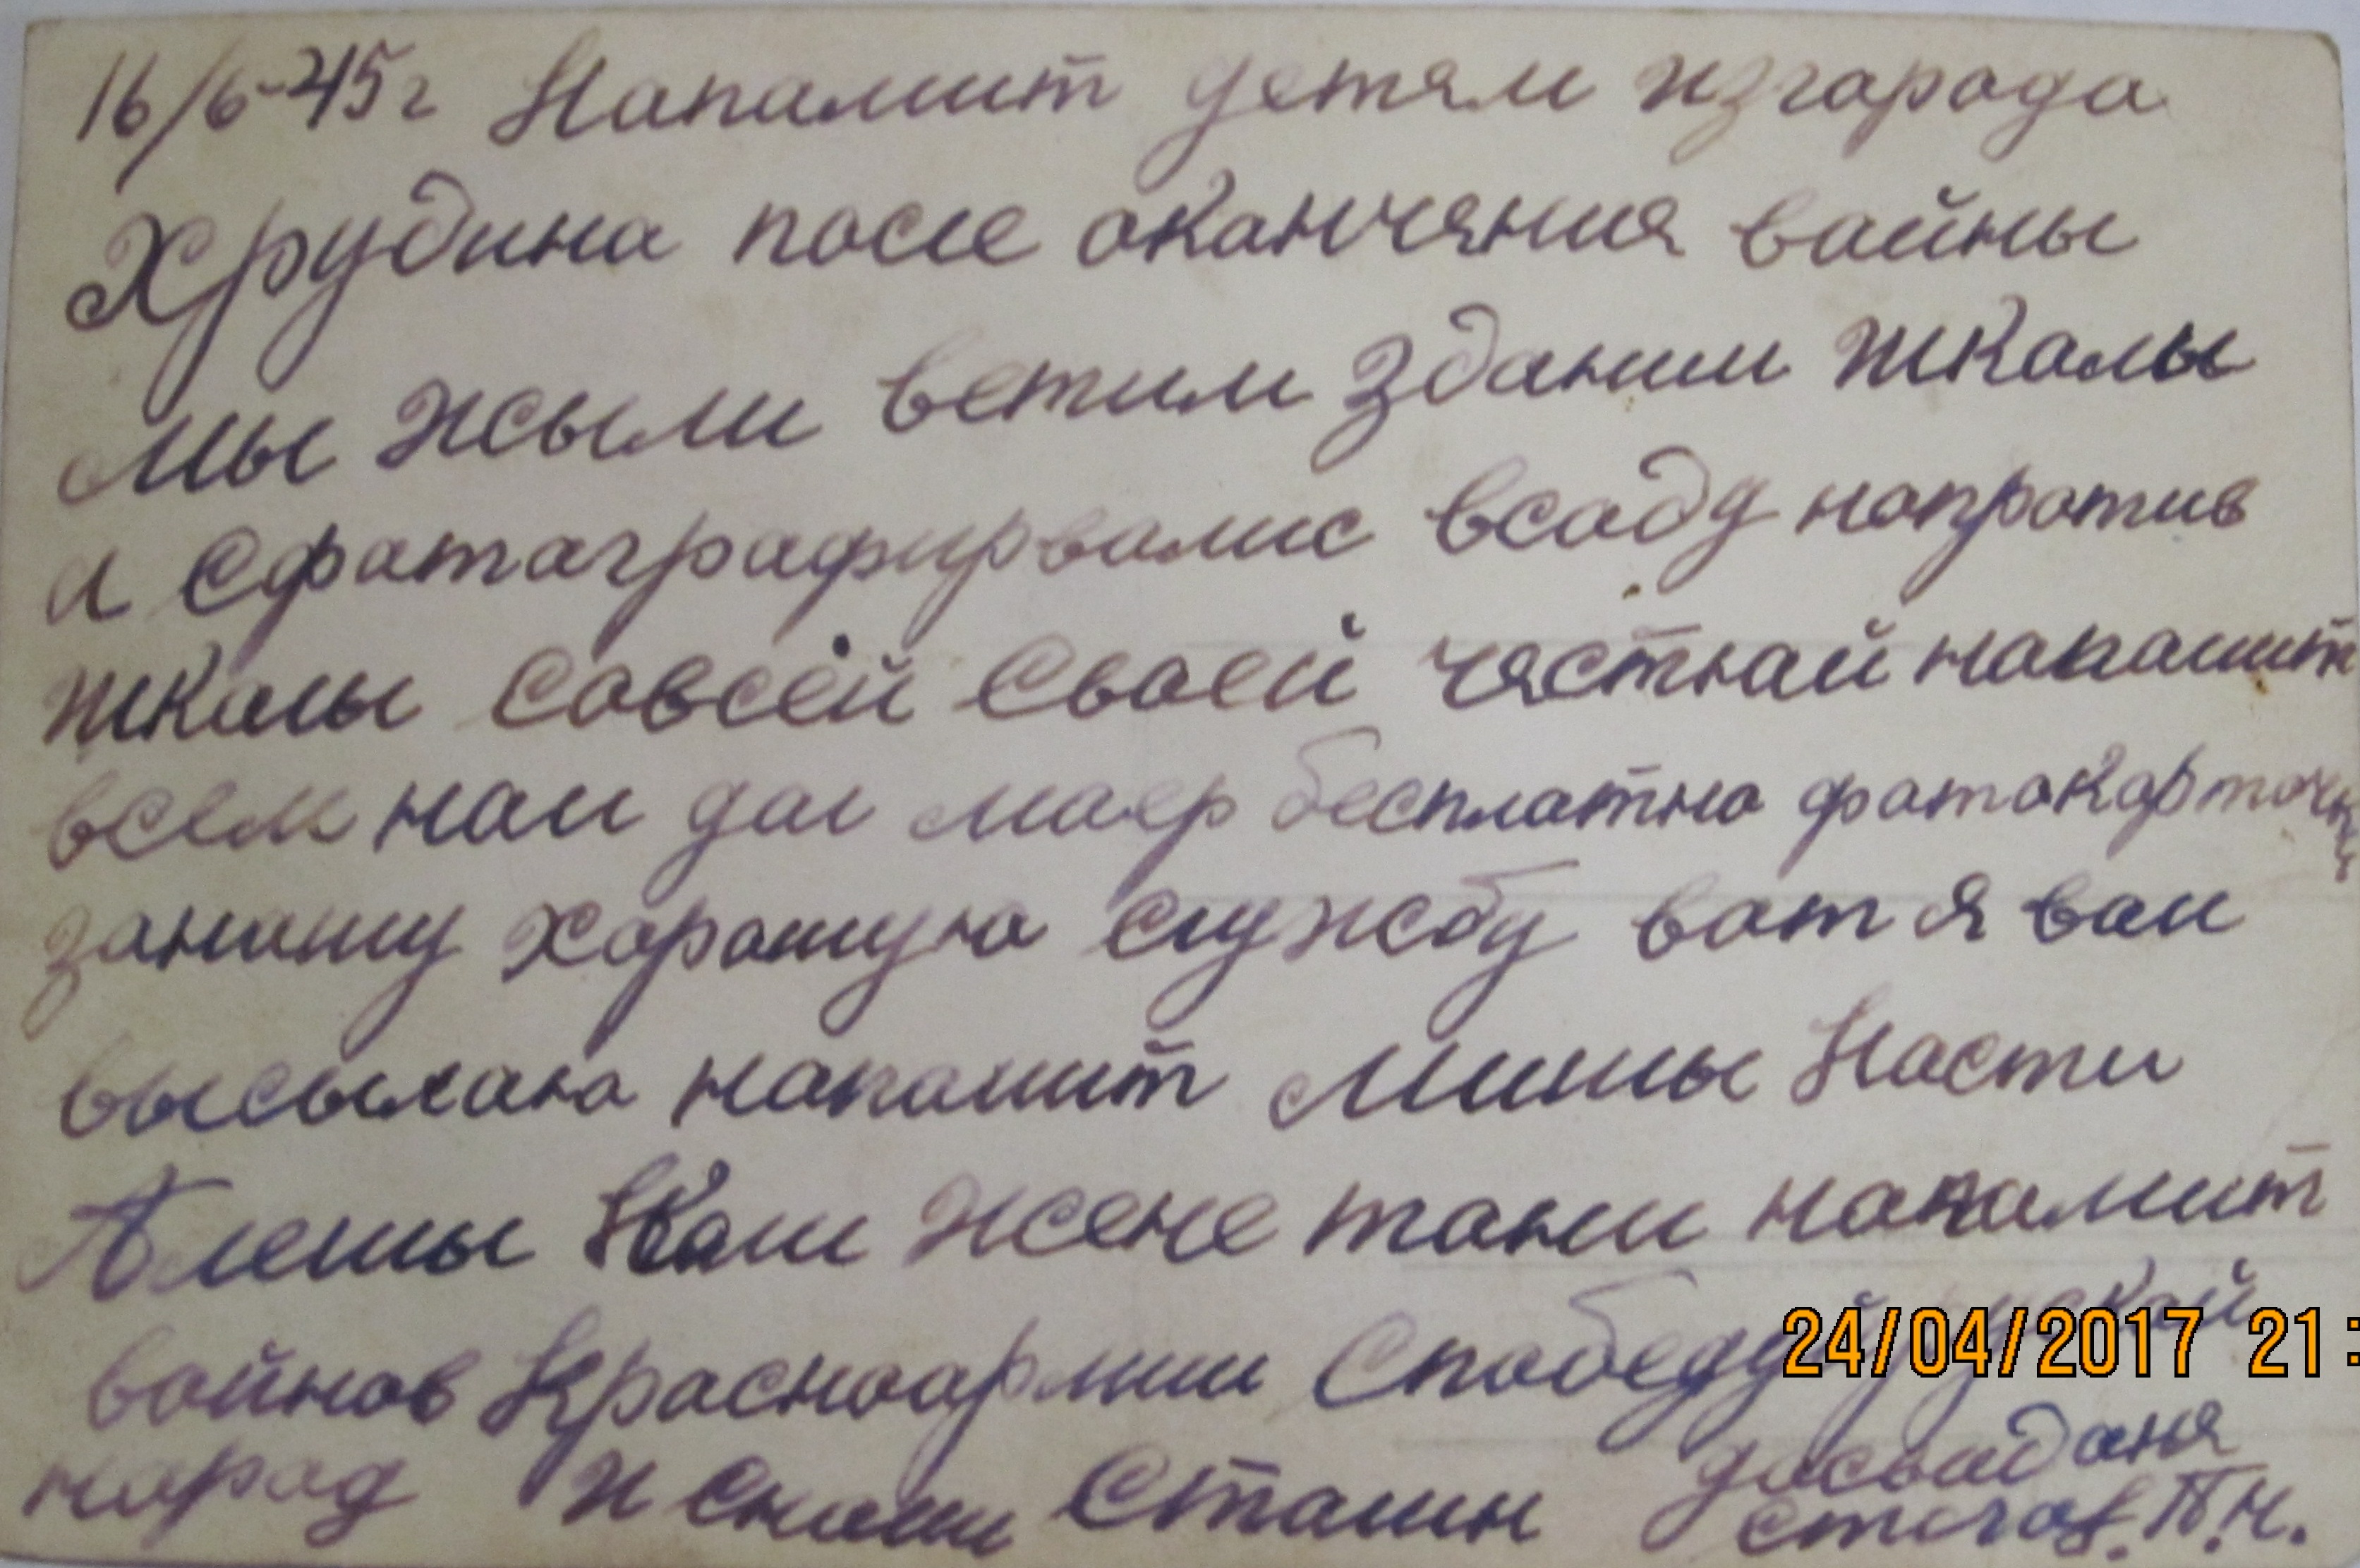 16/6-45г Напамит детям изгарада
Хрудина после оканчяния вайны
мы жыли ветим здании шкалы
а сфатаграфирвалис всаду напротив
шкалы совсей своей чястнай напамит
всем нам дал маер бесплатна фатакарточку
занашу харошую службу вот я вам
высылаю напамит Мишы Насти
Алешы Кам жене тани напамит
вайнов Красноармии Спобеддй рускай
народ и снами Сталин досвидания
24/04/2017 21:
П.Н.